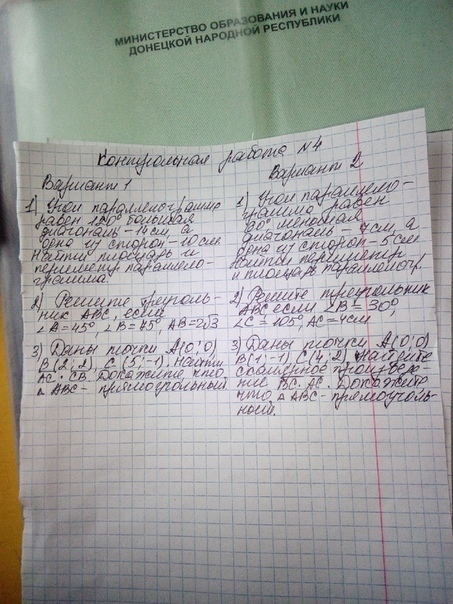 МИНИСТЕРСТВО ОБРАЗОВАНИЯ И НАУКИ
ДОНЕЦКОЙ НАРОДНОЙ РЕСПУБЛИКИ
Контрольная работа №4
Вариант 1
1) Угол параллелограмма
равен 120° большая
диагональ - 14см, а
одна из сторон - 10см.
Найти площадь и
периметр параллело-
грамма.
2) Решите треуголь-
ник ABC, если
∠A=45° ∠B=75°, AB=2√3
3) Даны точки A(0;0)
B(2;2), C(5;-1). Найти
AC · CB. Докажите что
△ABC - прямоугольный
Вариант 2
1) Угол параллело-
грамма равен
60° меньшая
диагональ - 7см, а
одна из сторон - 5см
Найти периметр
и площадь параллелогр.
2) Решите треугольник
ABC если ∠B=30°,
∠C=105°, AC=4см,
3) Даны точки A(0;0)
B(1;-1) C(4;2) Найдите
скалярное произведе-
ние BC · AC. Докажите
что △ABC - прямоуголь-
ный.